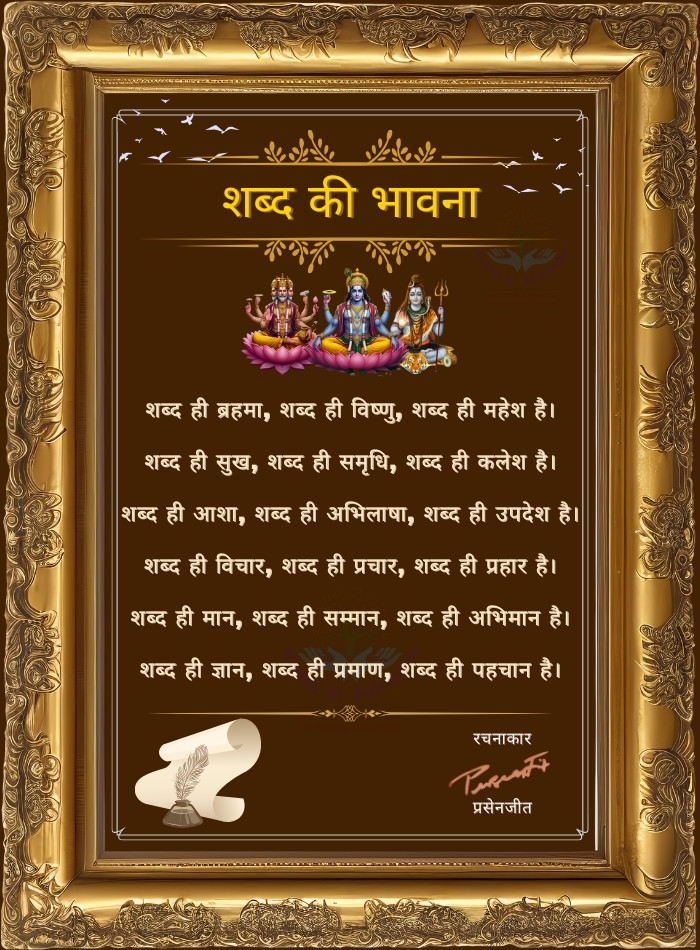 शब्द की भावना
शब्द ही ब्रहमा, शब्द ही विष्णु, शब्द ही महेश है।
शब्द ही सुख, शब्द ही समृधि, शब्द ही कलेश है।
शब्द ही आशा, शब्द ही अभिलाषा, शब्द ही उपदेश है।
शब्द ही विचार, शब्द ही प्रचार, शब्द ही प्रहार है।
शब्द ही मान, शब्द ही सम्मान, शब्द ही अभिमान है।
शब्द ही ज्ञान, शब्द ही प्रमाण, शब्द ही पहचान है।
रचनाकार
प्रसेनजीत